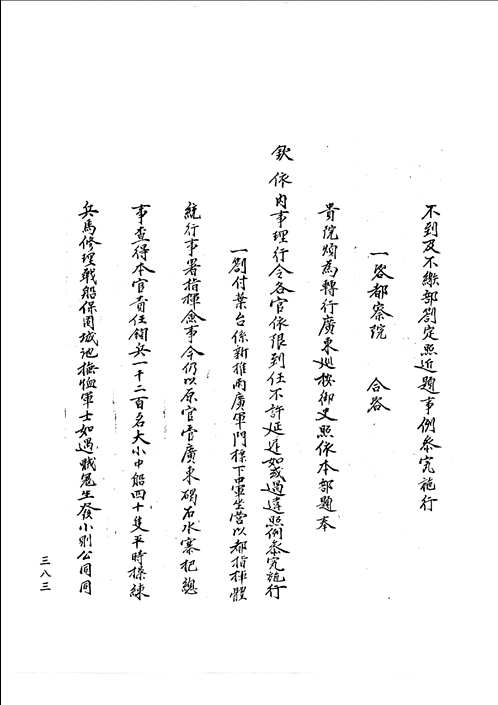 不到及不繳部劄定照近題事例參究施行
一咨都察院　合咨
貴院煩為轉行廣東巡按御史照依本部題奉
欽依內事理行令各官依限到任不許延遲如或過違照例參究施行
一劄付葉台係新推兩廣軍門標下中軍坐營以都指揮體
統行事署指揮僉事今仍以原官管廣東碣石水寨把總
事查得本官責任領兵一千二百名大小中船四十隻平時操練
兵馬修理戰船保固城池撫恤軍士如遇賊寇生發小則公同同
三八三